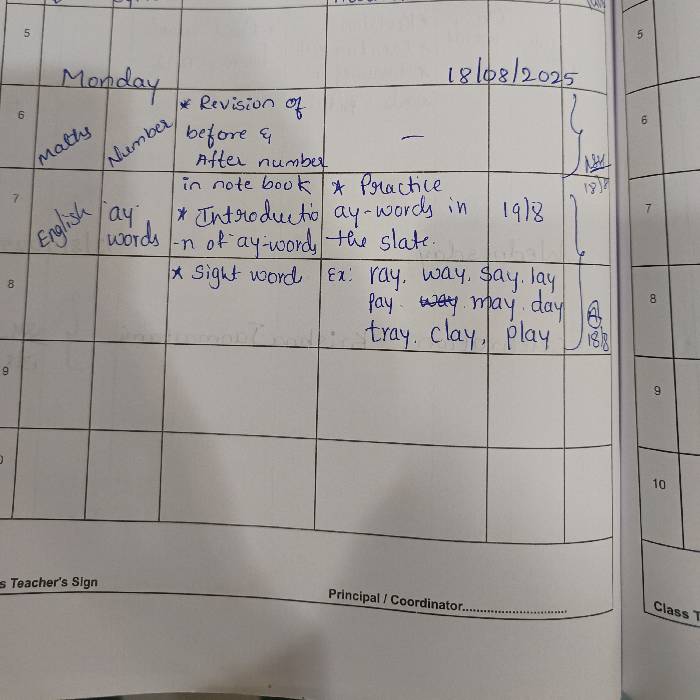 5
5
Monday 18/08/2025
6
Maths
Number
* Revision of
before &
After number
in note book
—
18/8
6
7
English
ay
words
* Introductio
-n of ay-words
* Practice
ay-words in
the slate.
19/8
7
8
* Sight word
Ex: ray. way. say. lay
pay. way. may. day
tray. clay. play
18/8
8
9
9
10
s Teacher's Sign
Principal / Coordinator..............................
Class T